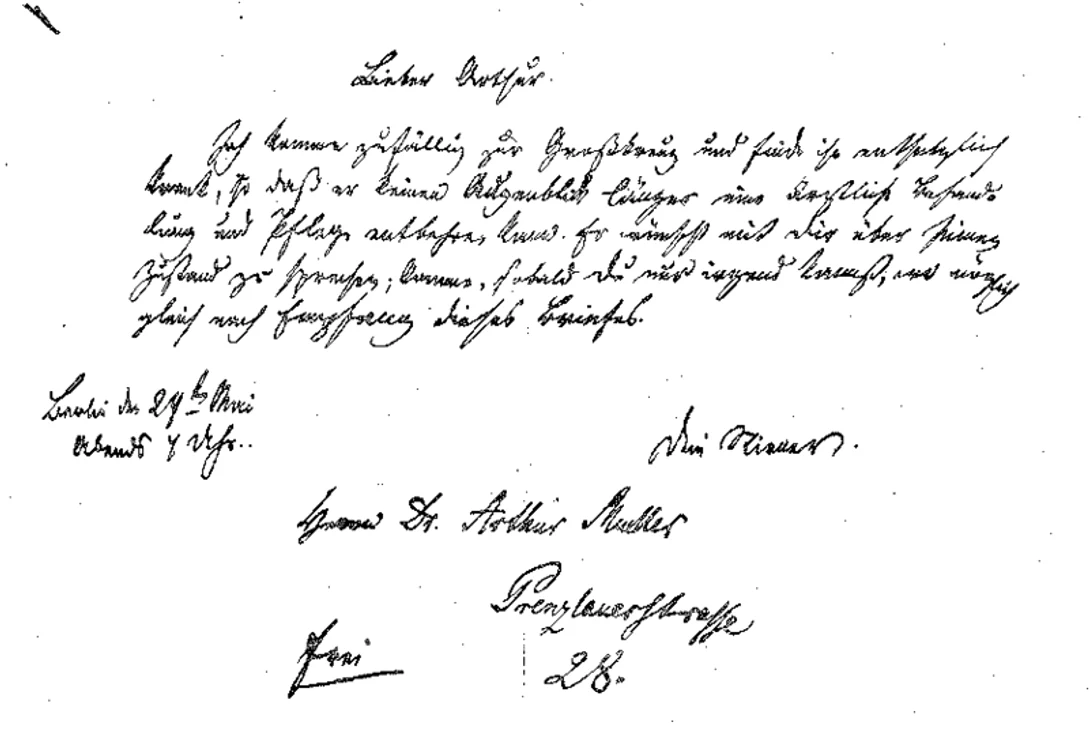 Lieber Arthur.
Ich komme zufällig zur Großkreuz und finde ihn entsetzlich
krank, so daß er keinen Augenblick länger eine ärztliche Behand-
lung und Pflege entbehren kann. Er wünscht mit Dir über seinen
Zustand zu sprechen; komme, sobald Du nur irgend kannst, wo möglich
gleich nach Empfang dieses Briefes.
Berlin den 24ten Mai
Abends 7 Uhr..
Dein
Herrn Dr. Arthur Müller
Prenzlauerstrasse
28.
Frei